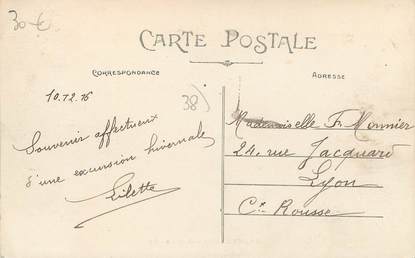 30 €
CARTE POSTALE
CORRESPONDANCE
ADRESSE
10.12.16
38)
Souvenir affectueux
d'une excursion hivernale
Lilette
Mademoiselle Fr. Monnier
24, rue Jacquard
Lyon
Cx. Rousse